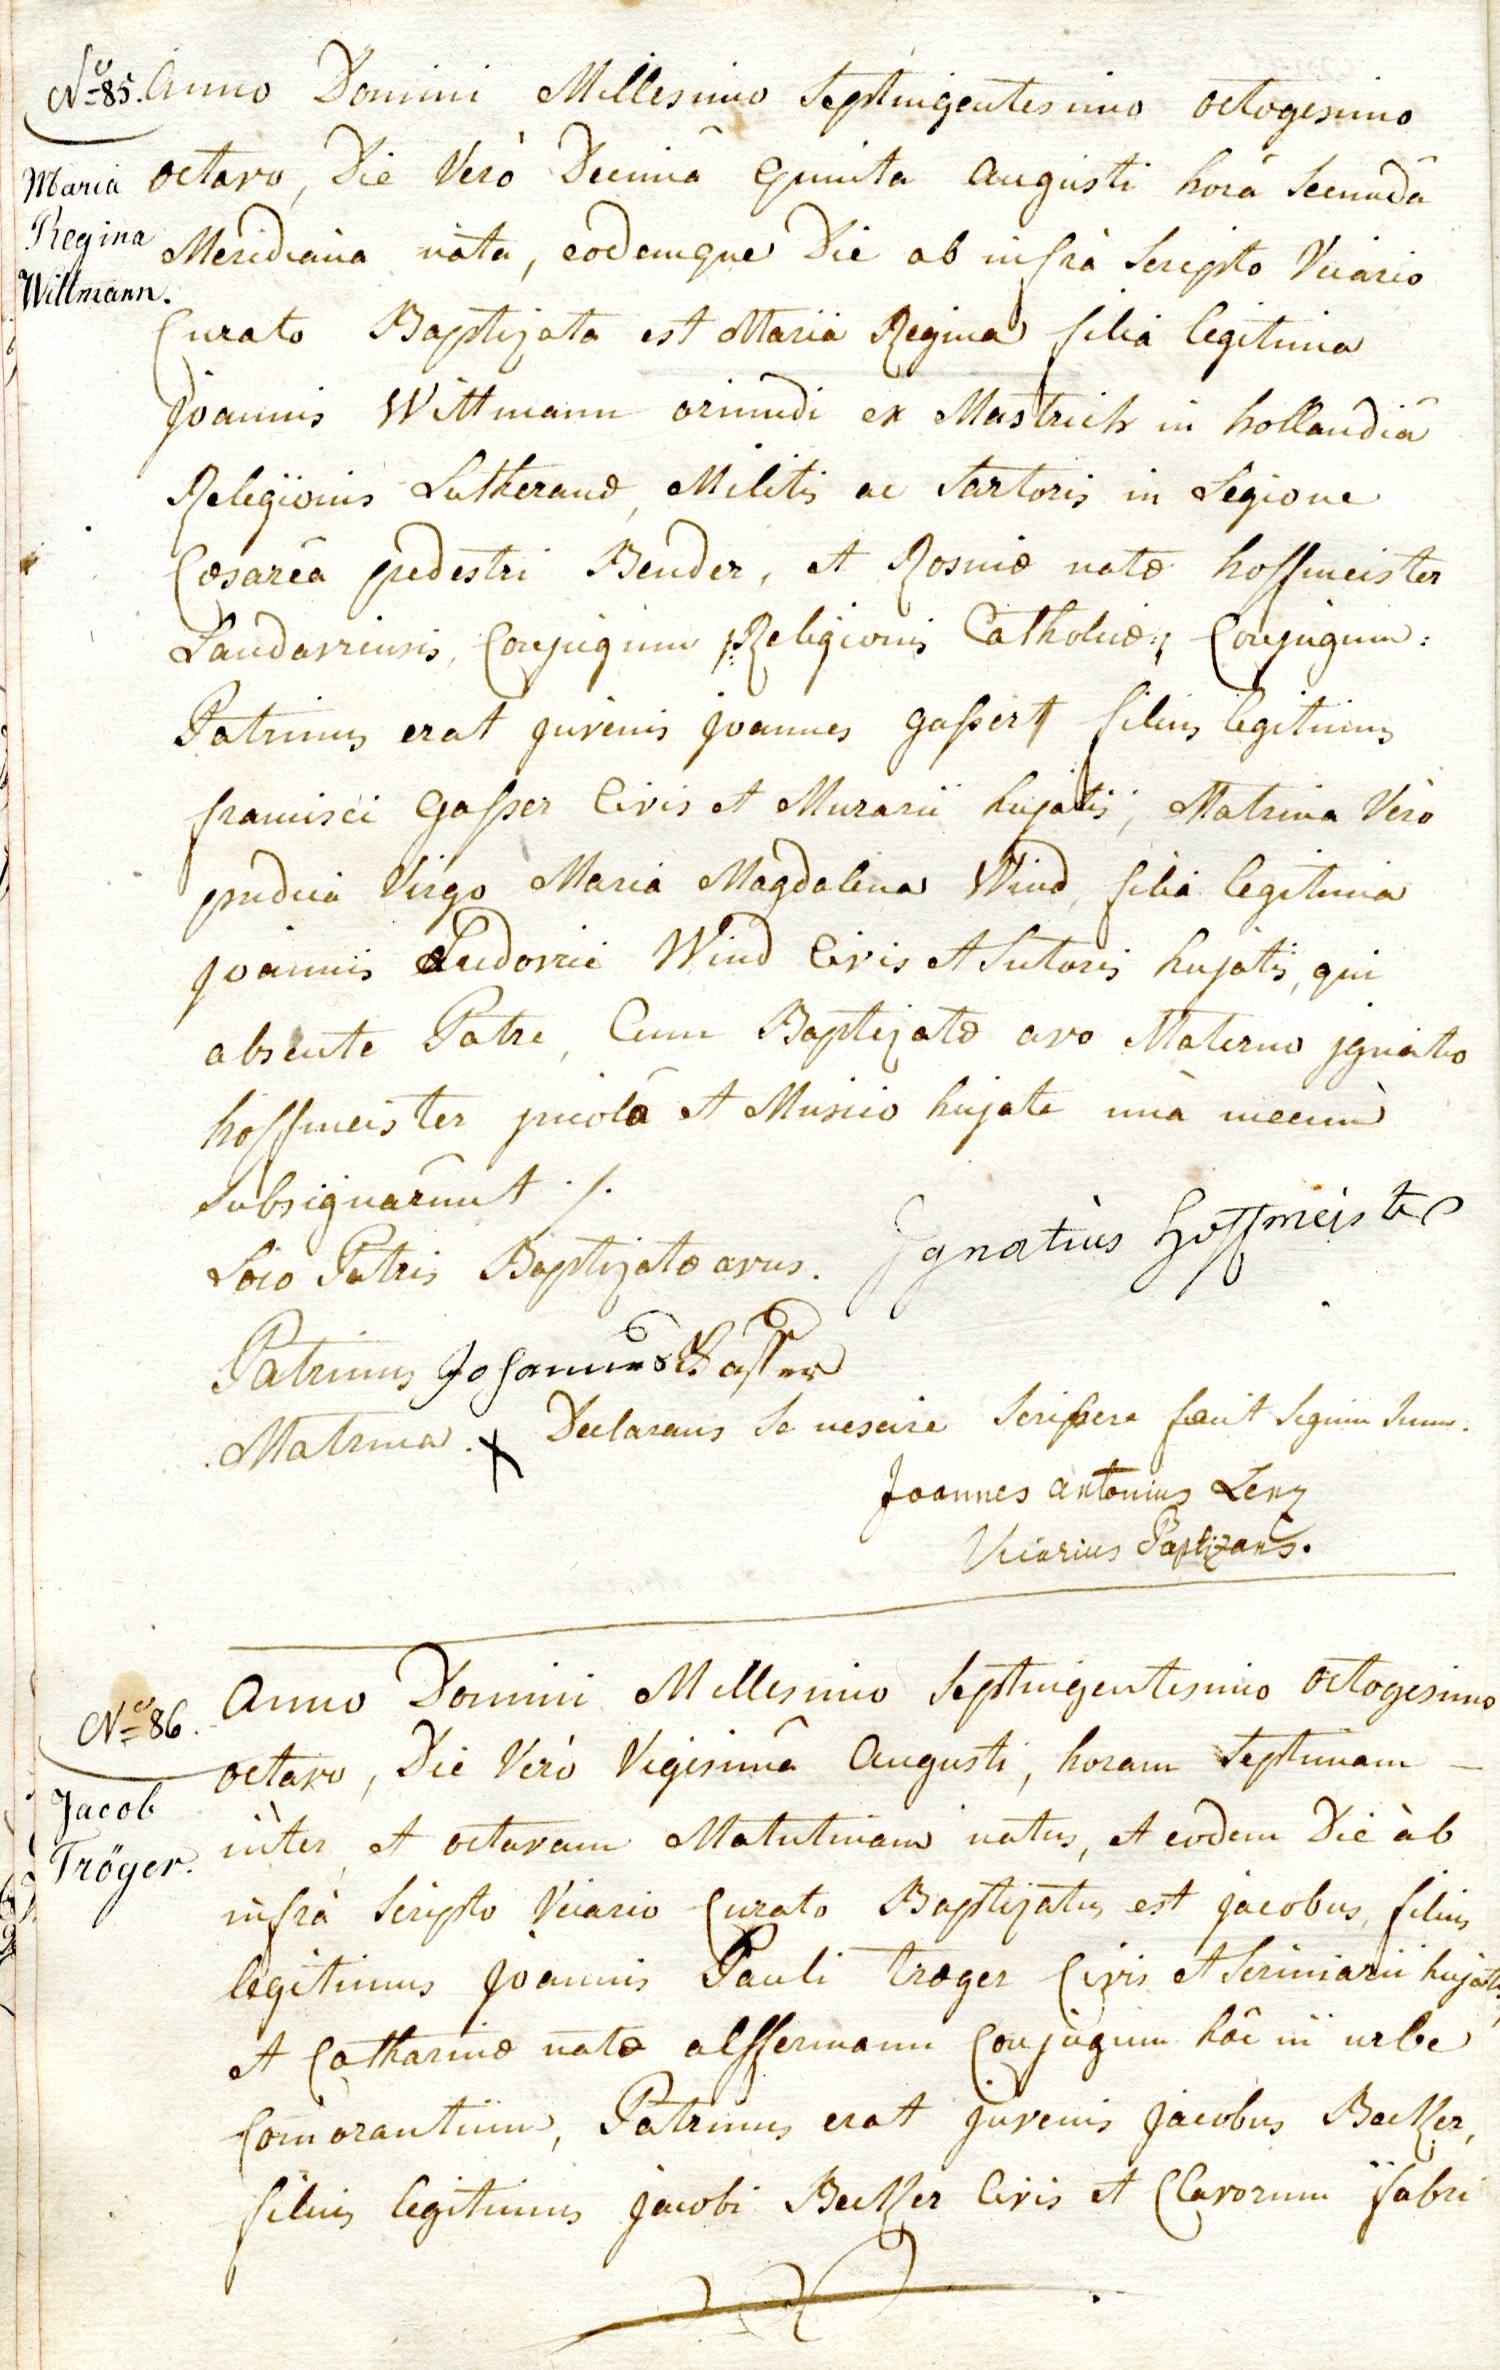 No 85. Anno Domini Millesimo Septingentesimo octogesimo
Maria
Regina
Wittmann.
octavo, Die Verò Decimâ Quinta Augusti horâ Secundâ
Meridiana nata, eodemque Die ab infrà Scripto Vicario
Curato Baptizata est Maria Regina filia legitima
Joannis Wittmann oriundi ex Mastrich in hollandiâ
Religionis Lutheranæ, Militis ac Sartoris in Legione
Cæsareâ pedestri Bender, et Rosinæ natæ hoffmeister
Landaviensis, Conjugum /:Religionis Catholicæ:/ Conjugum:
Patrinus erat juvenis joannes gasser filius legitimus
francisci Gasser Civis et Murarii hujatis; Matrina Verò
pudica Virgo Maria Magdalena Wind, filia legitima
joannis Ludovici Wind Civis et Sutoris hujatis, qui
absente Patre, Cum Baptizatæ avo Materno jgnatio
hoffmeister jncolâ et Musico hujate unà mecum
Subsignârunt ./.
Loco Patris Baptizatæ avus. Jgnatius Hoffmeister
Patrinus Johannes Gasser
Matrina. x Declarans Se nescire Scribere fecit Signum Suum.
Joannes antonius Lenz
Vicarius Baptizans.
No 86.
Jacob
Tröger.
Anno Domini Millesimo Septingentesimo Octogesimo
octavo, Die Verò Vigesimâ Augusti, horam Septimam –
intèr et octavam Matutinam natus, et eodem Die àb
infrà Scripto Vicario Curato Baptizatus est jacobus, filius
legitimus Joannis Pauli Træger Civis et Scriniarii hujatis,
et Catharinæ natæ alffermann Conjugum hâc in urbe
Com̄orantium, Patrinus erat juvenis jacobus Becker,
filius legitimus jacobi Becker Civis et Clavorum fabri